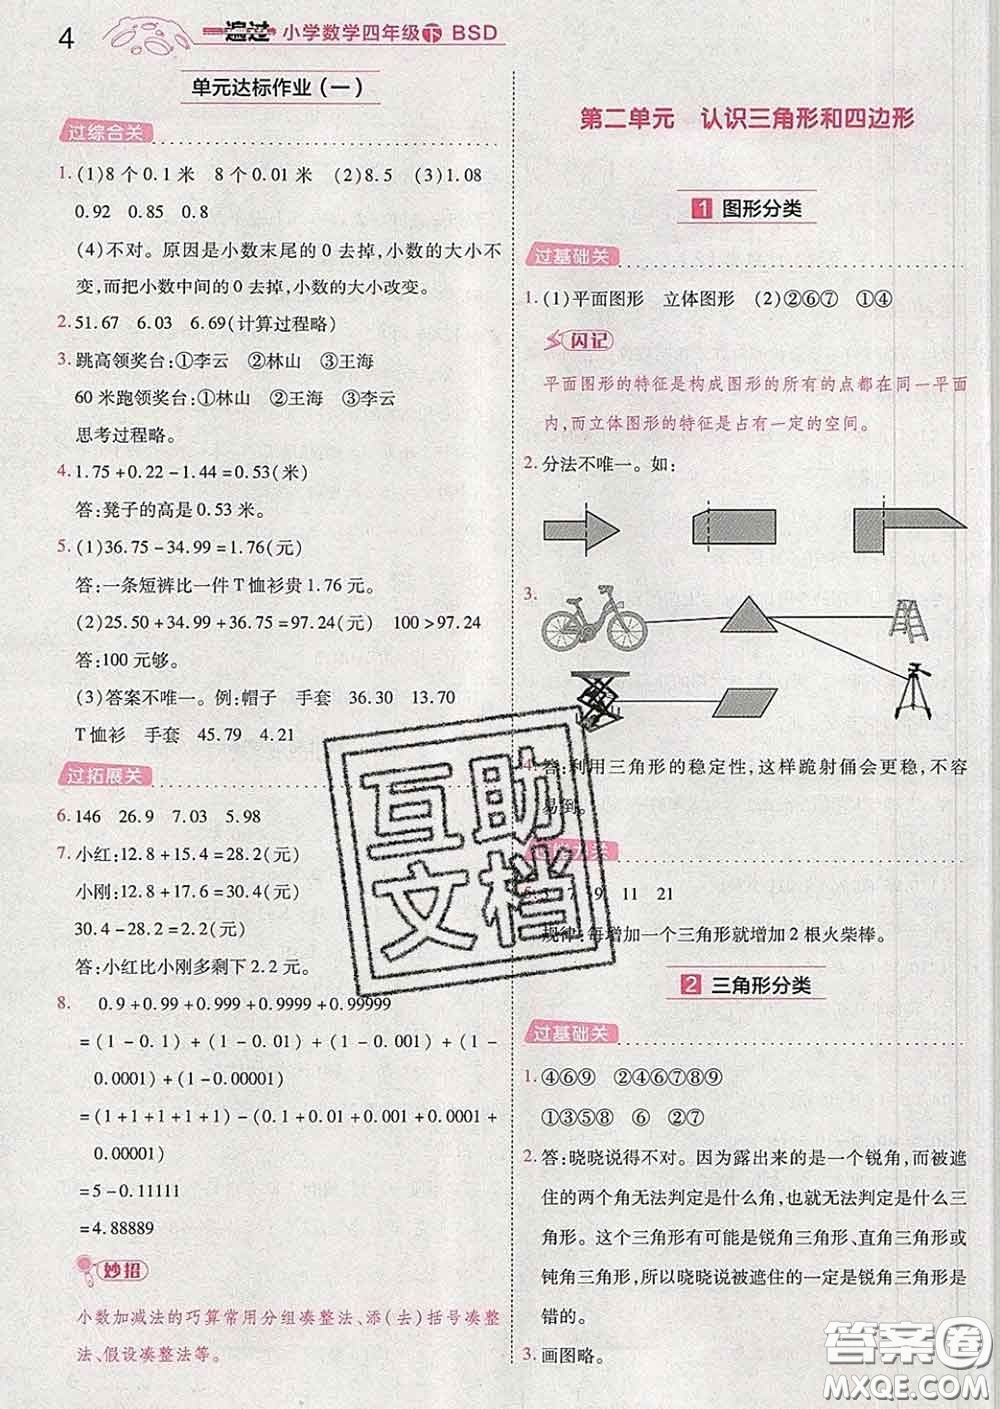 4
一遍过 小学数学四年级 下 BSD
单元达标作业(一)
过综合关
1. (1)8个0.1米 8个0.01米 (2)8.5 (3)1.08
0.92 0.85 0.8
(4)不对。原因是小数末尾的0去掉,小数的大小不
变,而把小数中间的0去掉,小数的大小改变。
2. 51.67 6.03 6.69(计算过程略)
3. 跳高领奖台:①李云 ②林山 ③王海
60米跑领奖台:①林山 ②王海 ③李云
思考过程略。
4. 1.75+0.22-1.44=0.53(米)
答:凳子的高是0.53米。
5. (1)36.75-34.99=1.76(元)
答:一条短裤比一件T恤衫贵1.76元。
(2)25.50+34.99+36.75=97.24(元) 100>97.24
答:100元够。
(3)答案不唯一。例:帽子 手套 36.30 13.70
T恤衫 手套 45.79 4.21
过拓展关
6. 146 26.9 7.03 5.98
7. 小红:12.8+15.4=28.2(元)
小刚:12.8+17.6=30.4(元)
30.4-28.2=2.2(元)
答:小红比小刚多剩下2.2元。
8. 0.9+0.99+0.999+0.9999+0.99999
=(1-0.1)+(1-0.01)+(1-0.001)+(1-
0.0001)+(1-0.00001)
=(1+1+1+1+1)-(0.1+0.01+0.001+0.0001+
0.00001)
=5-0.11111
=4.88889
妙招
小数加减法的巧算常用分组凑整法、添(去)括号凑整
法、假设凑整法等。
第二单元 认识三角形和四边形
1 图形分类
过基础关
1. (1)平面图形 立体图形 (2)②⑥⑦ ①④
闪记
平面图形的特征是构成图形的所有的点都在同一平面
内,而立体图形的特征是占有一定的空间。
2. 分法不唯一。如:
3.
4. 答:利用三角形的稳定性,这样跪射俑会更稳,不容
易倒。
5. 7 9 11 21
规律:每增加一个三角形就增加2根火柴棒。
2 三角形分类
过基础关
1. ④⑥⑨ ②④⑥⑦⑧⑨
①③⑤⑧ ⑥ ②⑦
2. 答:晓晓说得不对。因为露出来的是一个锐角,而被遮
住的两个角无法判定是什么角,也就无法判定是什么三
角形。这个三角形有可能是锐角三角形、直角三角形或
钝角三角形,所以晓晓说被遮住的一定是锐角三角形是
错的。
3. 画图略。
互助
文档
答案圈
MXQE.COM